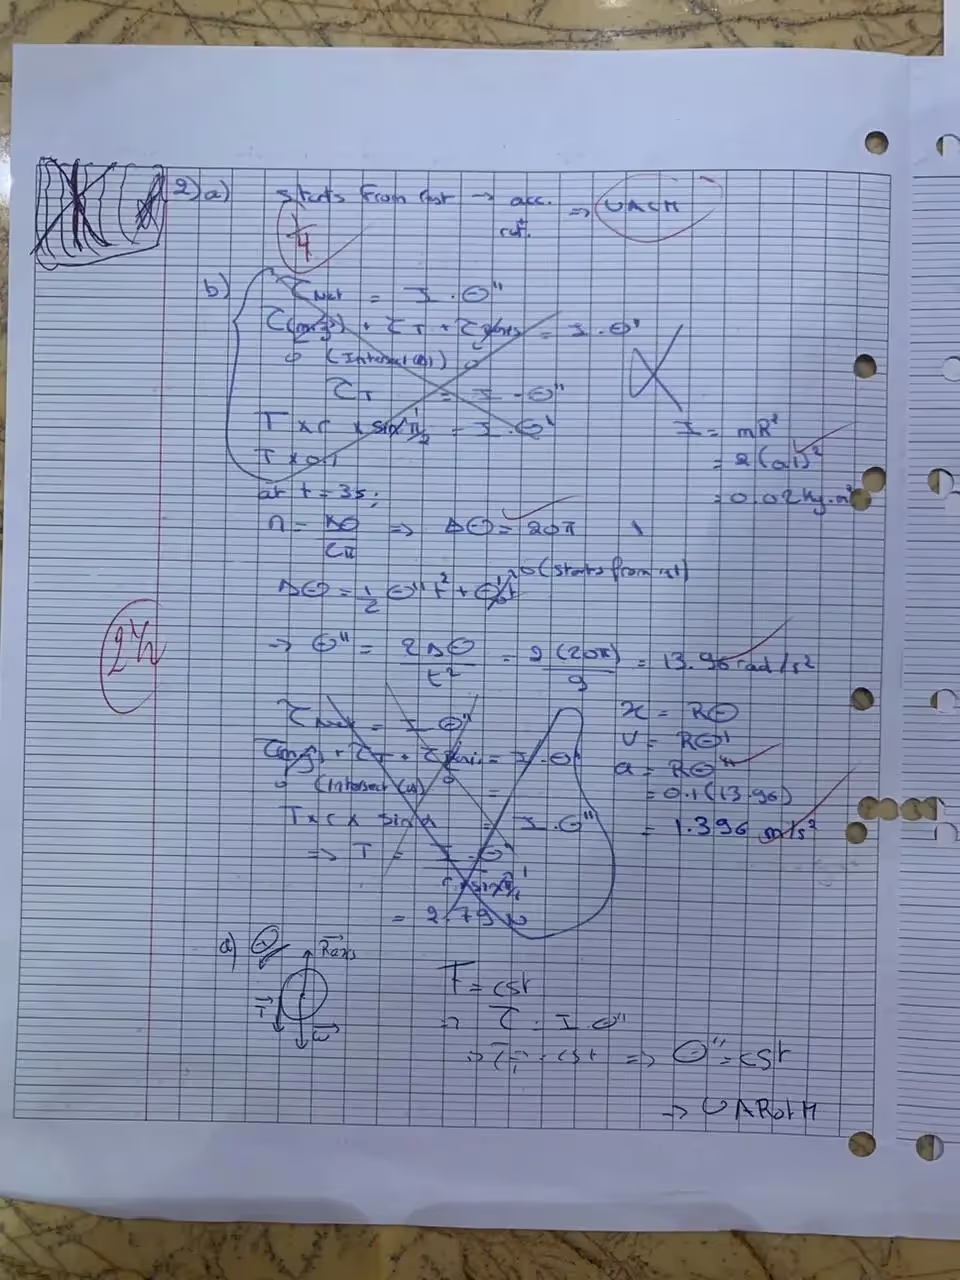 2) a) starts from rest → acc. rot. ⇒ UACM
1/4
b) τNet = I . θ"
τ(mg) + τT + τRaxis = I . θ"
0 (Intersect(Δ)) 0
τT = I . θ"
T × r × sin π/2 = I . θ"
T × 0.1
I = mR²
= 2(0.1)²
= 0.02 kg.m²
at t = 3s;
n = Δθ/2π ⇒ Δθ = 20π
Δθ = 1/2 θ" t² + θ'0t 0 (starts from rest)
2 1/2
→ θ" = 2Δθ/t² = 2(20π)/9 = 13.96 rad/s²
τNet = I θ"
τ(mg) + τT + τRaxis = I . θ"
0 (intersect (Δ)) 0 =
T × r × sin α = I . θ"
⇒ T = I . θ" / r . sin π/2
= 2.79 N
x = Rθ
v = Rθ'
a = Rθ"
= 0.1 (13.96)
= 1.396 m/s²
a) Raxis
T
w
T = cst
⇒ τ = I . θ"
⇒ τT = cst ⇒ θ" = cst
→ UARotM